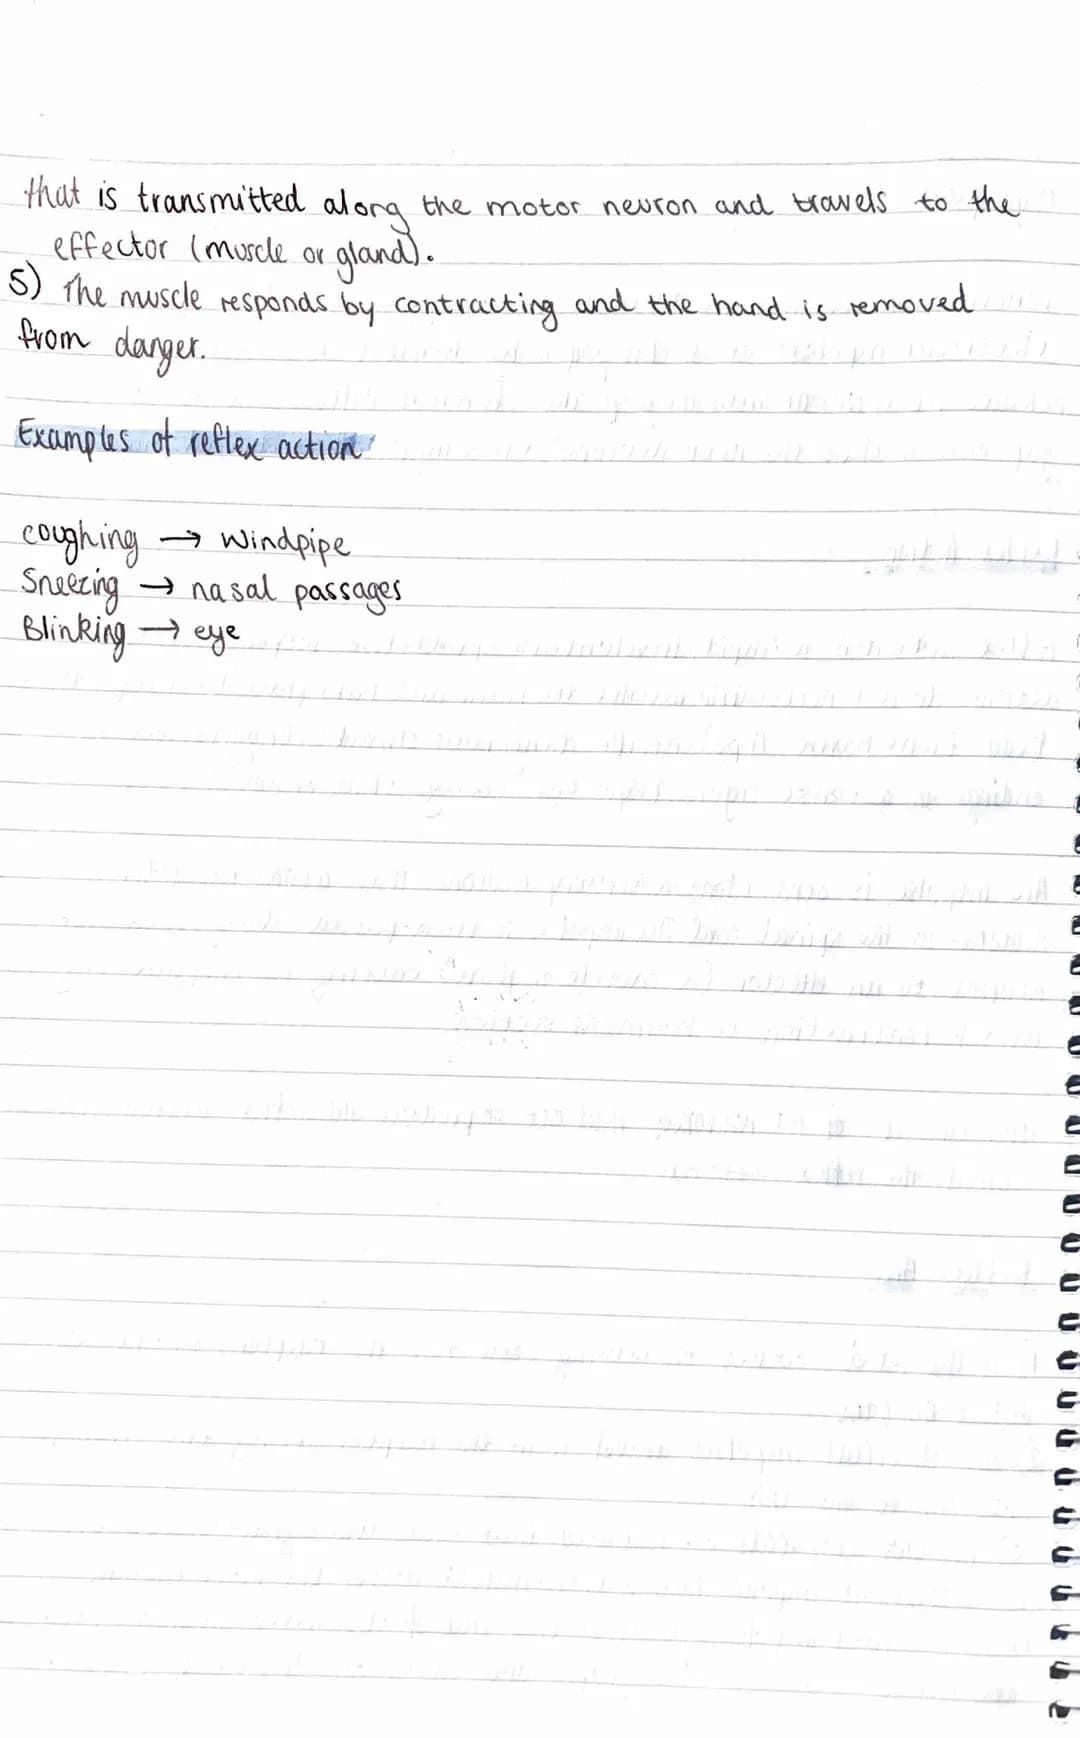 that is transmitted along the motor neuron and travels to the
effector (muscle or gland).
5) The muscle responds by contracting and the hand is removed
from danger.
Examples of reflex action
coughing → windpipe
Sneezing → nasal passages
Blinking → eye